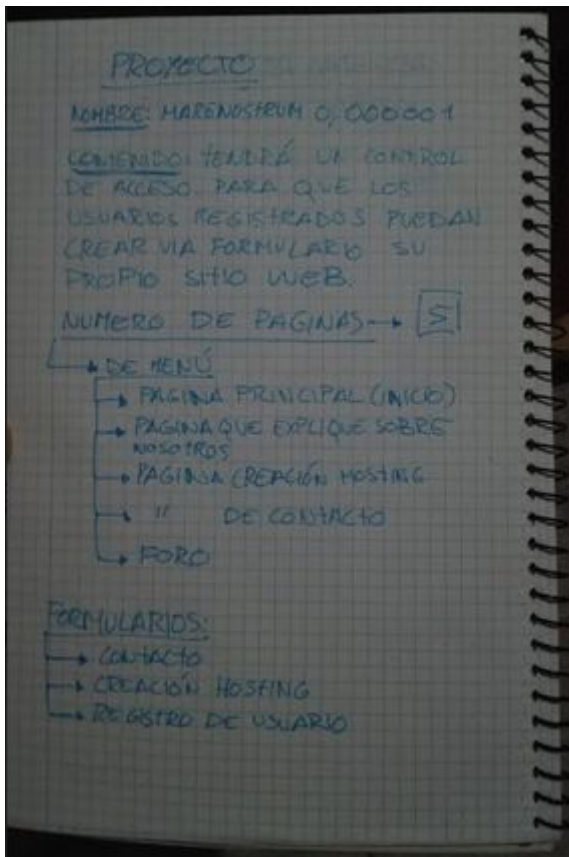 PROYECTO
NOMBRE: MARENOSTRUM 0,000001
CONTENIDO: TENDRÁ UN CONTROL
DE ACCESO PARA QUE LOS
USUARIOS REGISTRADOS PUEDAN
CREAR VIA FORMULARIO SU
PROPIO SITIO WEB.
NUMERO DE PAGINAS → 5
DE MENÚ
→ PAGINA PRINCIPAL (INICIO)
→ PAGINA QUE EXPLIQUE SOBRE
NOSOTROS
→ PAGINA CREACIÓN HOSTING
→ " DE CONTACTO
→ FORO
FORMULARIOS:
→ CONTACTO
→ CREACIÓN HOSTING
→ REGISTRO DE USUARIO